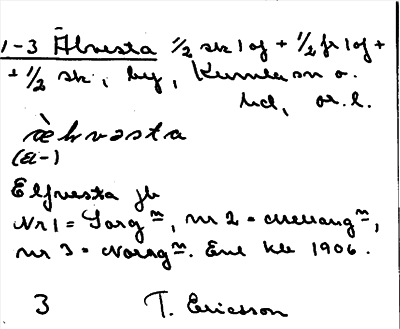 1-3 Älvesta 1/2 sk 1 of + 1/2 fr 1 of +
+ 1/2 sk, by, Kumla sn o.
hd, ör. l.
(Ei-)
Elfvesta jb
Nr 1 = Sörg m, nr 2 = Mellang m,
nr 3 = Norrg m. Enl kb 1906.
3 T. Ericsson